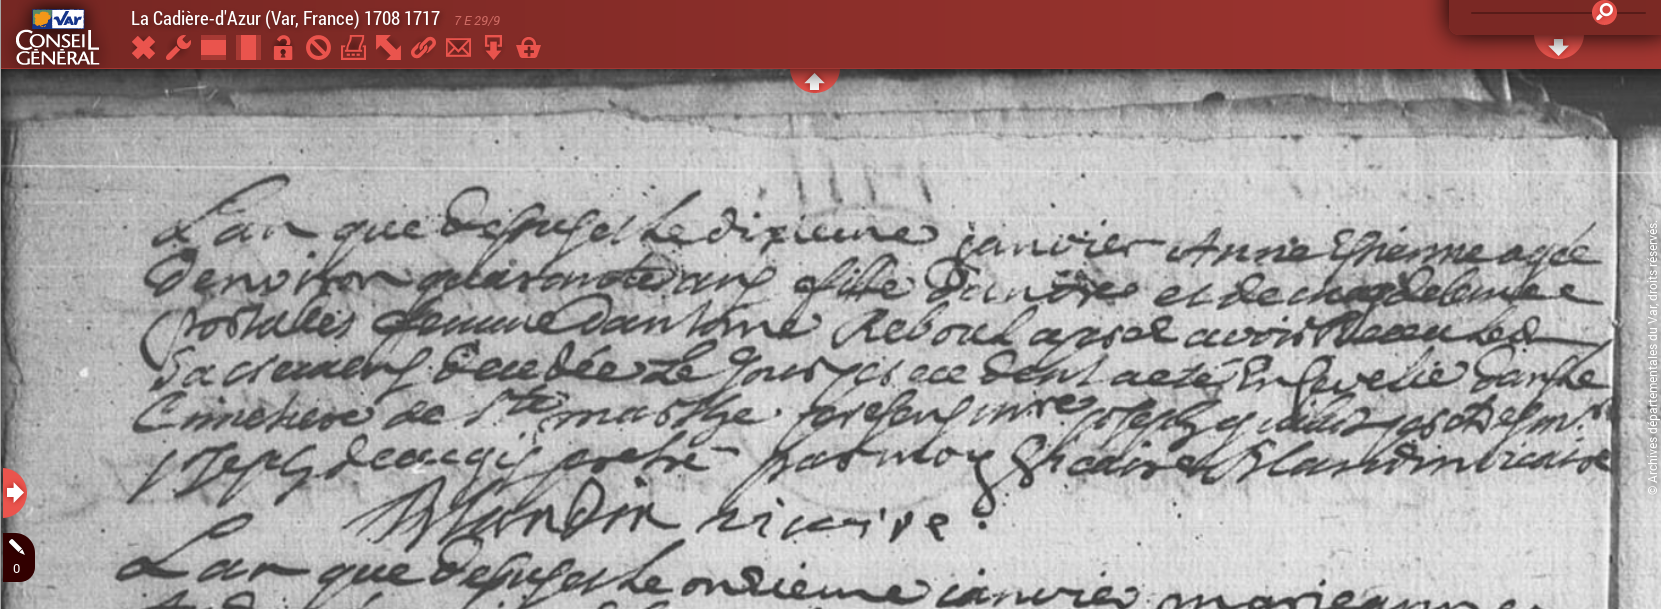 La Cadière-d'Azur (Var, France) 1708 1717 7 E 29/9
Var
CONSEIL
GÉNÉRAL
L'an que dessus et le dixieme janvier Anne Etienne agée
denviron quarante ans fille d'andre et de magdeleine
femme Dantoine Reboul apres avoir Receu les
Sacremens decedée le Jour et acté Ensevelie dans le
Cimetiere de Ste marthe presens mre joseph et mre
joseph decugis pretre par moy Blandin vicaire
Blandin vicaire
L'an que dessus et le onzieme janvier
0
© Archives départementales du Var, droits réservés